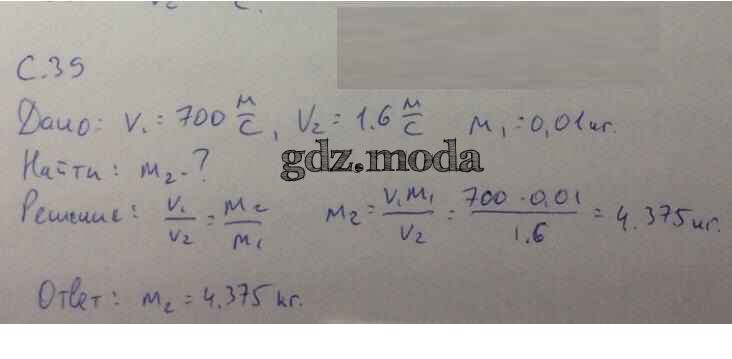 С. 39
Дано: V₁ = 700 м/с, V₂ = 1.6 м/с m₁ = 0,01 кг.
Найти: m₂ - ?
gdz.moda
Решение: V₁/V₂ = m₂/m₁ m₂ = V₁m₁/V₂ = 700 · 0,01/1.6 = 4.375 кг.
Ответ: m₂ = 4.375 кг.